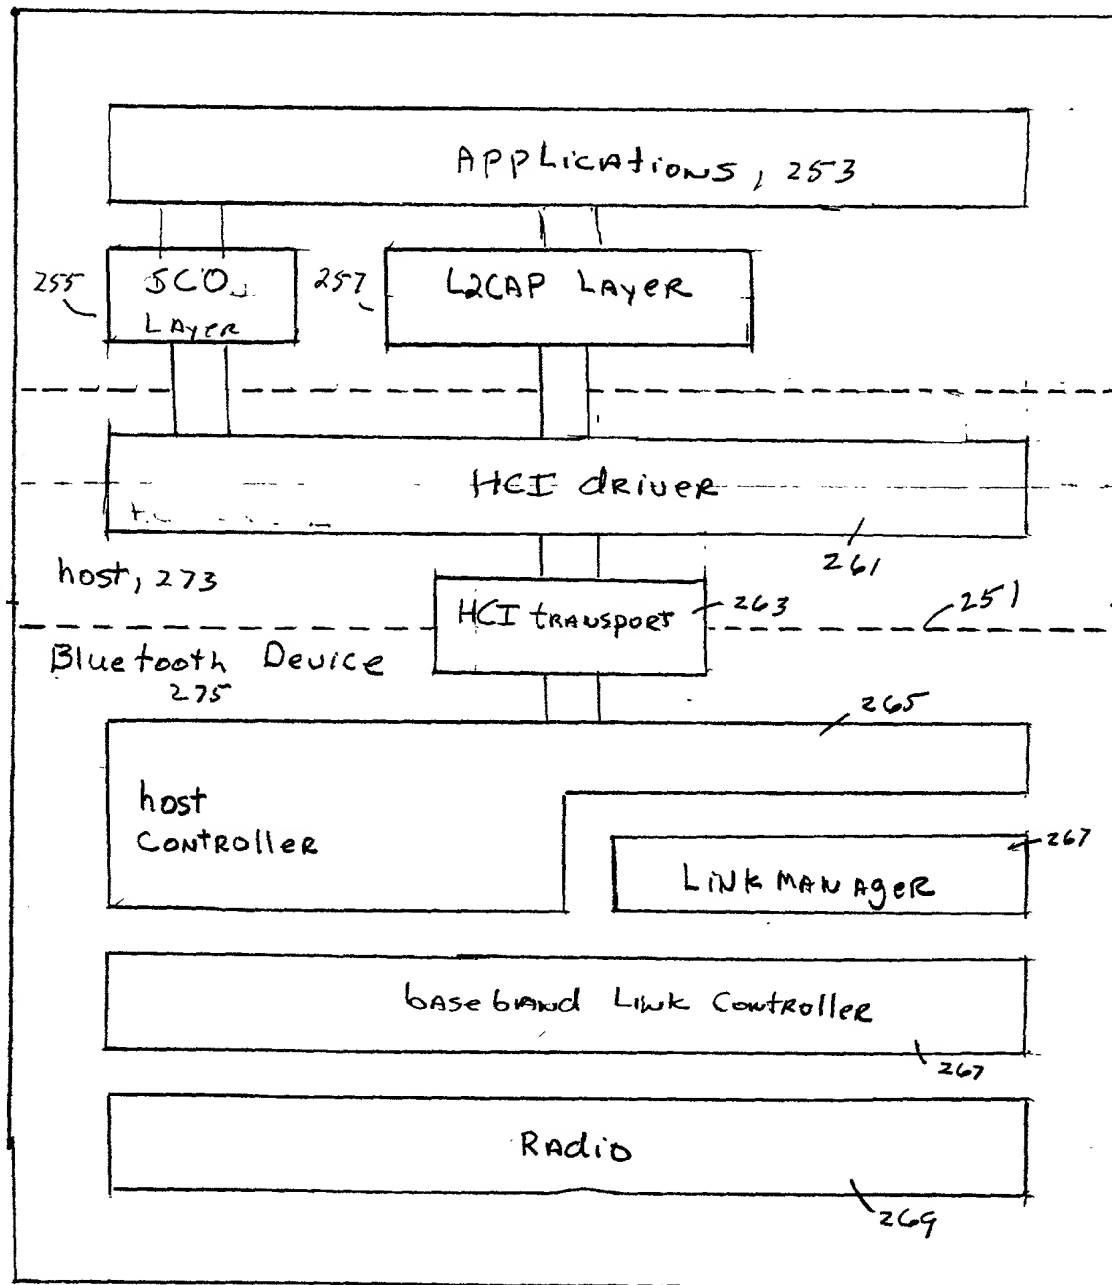 Applications, 253
255
SCO
Layer
257
L2CAP Layer
HCI driver
261
host, 273
HCI transport
263
251
Bluetooth Device
275
265
host
Controller
267
Link Manager
baseband Link Controller
267
Radio
269